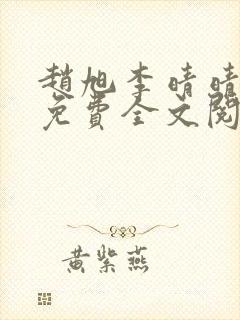 趙旭李晴晴
免費全文閱
黃紫燕